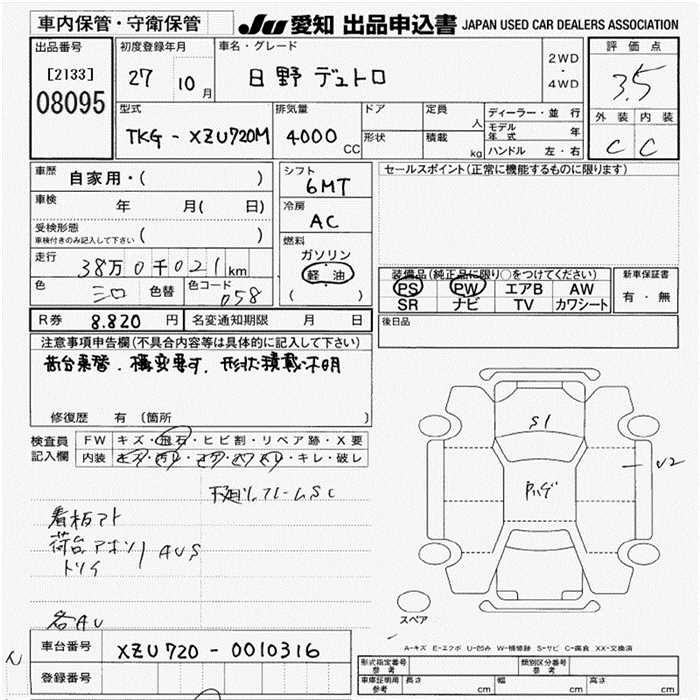 車内保管・守衛保管
JU 愛知 出品申込書 JAPAN USED CAR DEALERS ASSOCIATION
出品番号
[2133]
08095
初度登録年月
27 10月
車名・グレード
日野 デュトロ
2WD
・
4WD
評価点
3.5
外装 内装
C C
型式
TKG - XZU720M
排気量
4000 CC
ドア
形状
定員 人
積載 kg
ディーラー・並行
モデル年式 年
ハンドル 左・右
車歴 自家用・( )
車検 年 月( 日)
受検形態
車検付きのみ記入して下さい ( )
走行 38万0千021km
色 色替
色コード 058
シフト
6MT
冷房
AC
燃料
ガソリン
軽油
( )
セールスポイント(正常に機能するものに限ります)
装備品(純正品に限り○をつけてください)
PS PW エアB AW
SR ナビ TV カワシート
新車保証書
有・無
R券 8.820 円 名変通知期限 月 日
後日品
注意事項申告欄(不具合内容等は具体的に記入して下さい)
形状積載不明
修復歴 有 〔箇所 〕
検査員
記入欄
FW キズ・飛石・ヒビ割・リペア跡・X要
内装 キズ・汚レ・コゲ・穴・スレ・キレ・破レ
看板アト
荷台アオリ AUS
トリイ
各AU
S1
V2
スペア
A-キズ E-エクボ U-凹み W-補修跡 S-サビ C-腐食 XX-交換済
車台番号 XZU720 - 0010316
登録番号
形式指定番号 参考
類別区分番号 参考
車庫証明用 参考 長さ cm 幅 cm 高さ cm